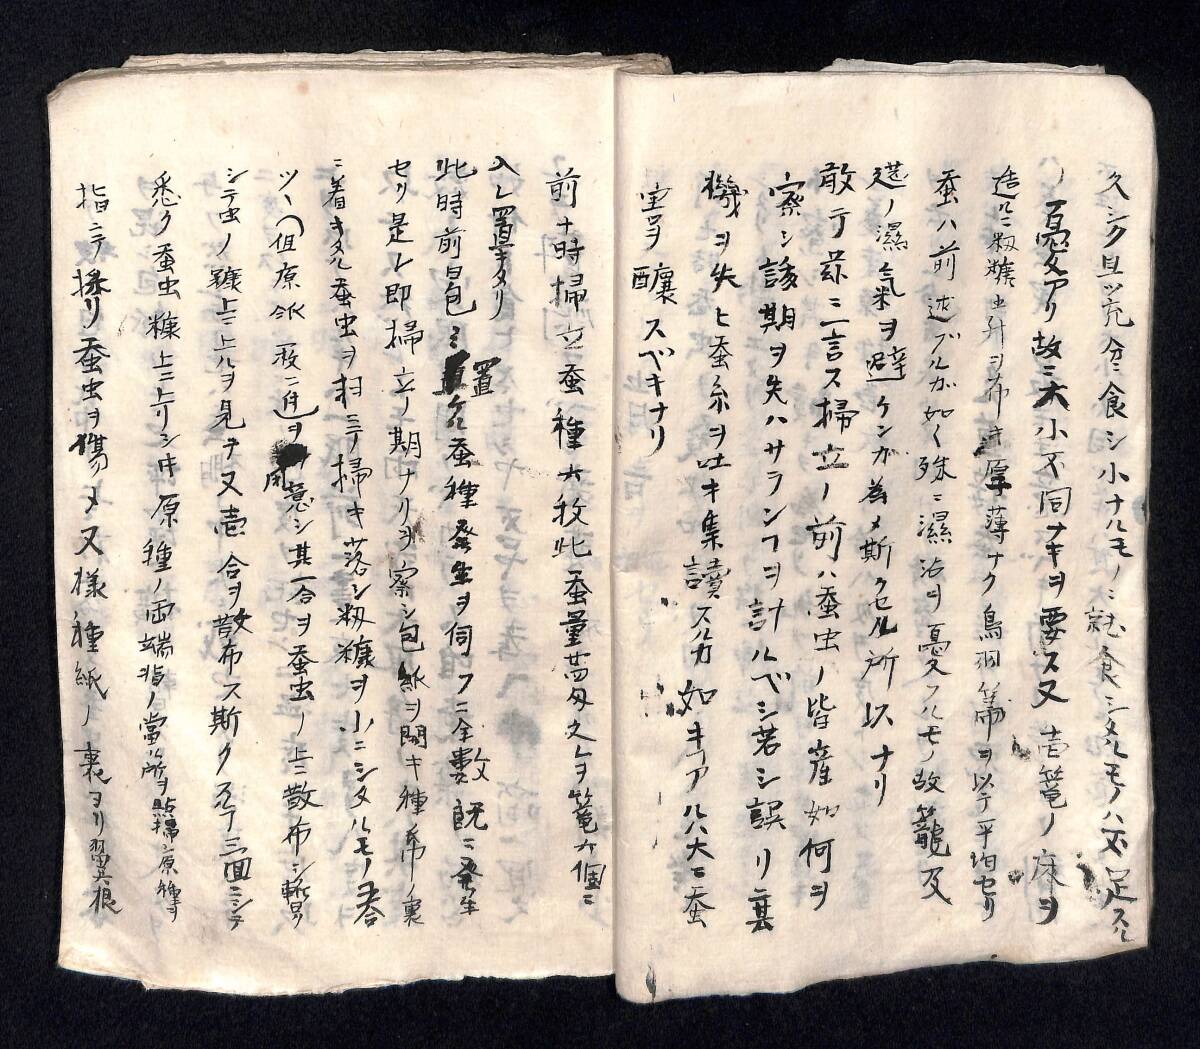 久シク且ツ充分ニ食シ小ナルモノニ就食シタルモノハ不足スル
ノ憂アリ故ニ大小不同ナキヲ要ス又壱篭ノ床ヲ
造ルニ籾糠 升ヲ布キ厚薄ナク鳥羽箒ヲ以テ平均セリ
蚕ハ前述ブルガ如ク殊ニ濕 ヲ憂フルモノ故籠及
筵ノ濕氣ヲ避ケンガ為メ斯クセル所以ナリ
敢テ茲ニ一言ス掃立ノ前ハ蚕虫ノ皆産如何ヲ
察シ該期ヲ失ハサランヿヲ計ルベシ若シ誤リ其
機ヲ失ヒ蚕糸ヲ吐キ集 スルカ如キヿアルハ大ニ蚕
害ヲ醸スベキナリ
前十時掃立蚕種六枚此蚕量 匁之レヲ篭六個ニ
入レ置キタリ
此時前日包ミ置ケル蚕種発生ヲ伺フニ全数既ニ発生
セリ是レ即掃立ノ期ナリヲ察シ包紙ヲ開キ種布ノ裏
ニ着キタル蚕虫ヲ扫ニテ掃キ落シ籾糠ヲ小ニシタルモノ壱合
ツヽ(但原紙一枚ニ付)ヲ用意シ其一合ヲ蚕虫ノ上ニ散布シ暫クノ
シテ虫ノ糠上ニ上ルヲ見テ又壱合ヲ散布ス斯クスルヿ三回ニシテ
悉ク蚕虫糠上ニ上リシ時原種ノ両端 ノ當ル所ヲ 掃シ原種ヲ
指ニテ採リ蚕虫ヲ傷メヌ様種紙ノ裏ヨリ翼根